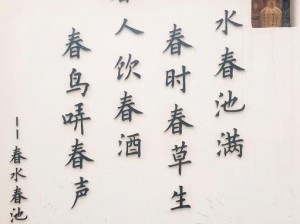 水春池满
春时春草生
人饮春酒
春鸟哢春声
——春水春池